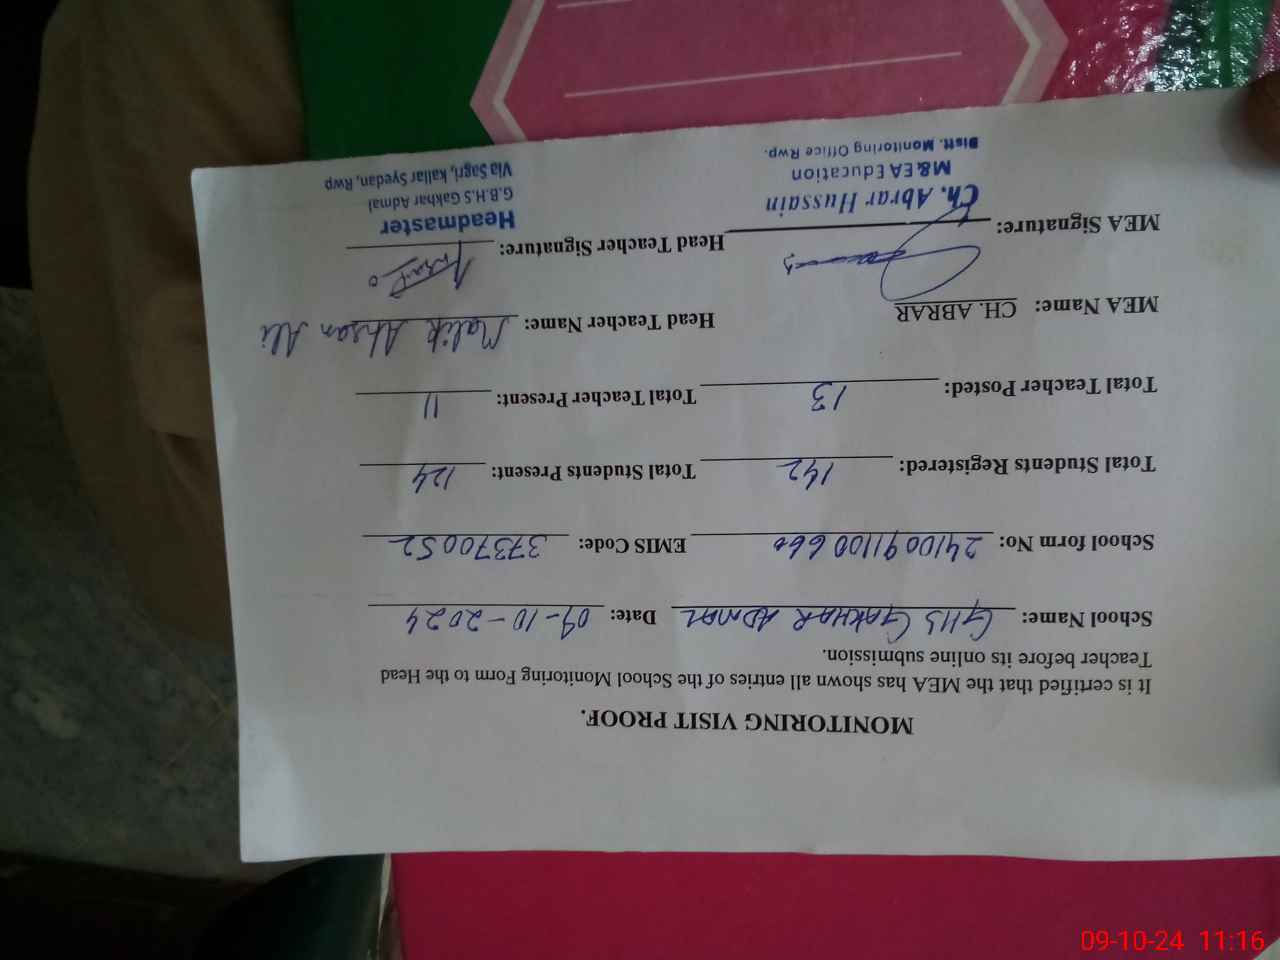 MONITORING VISIT PROOF.
It is certified that the MEA has shown all entries of the School Monitoring Form to the Head
Teacher before its online submission.
School Name: GHS GAKHAR ADMAL Date: 09-10-2024
School form No: 2410091100660 EMIS Code: 37370052
Total Students Registered: 142 Total Students Present: 124
Total Teacher Posted: 13 Total Teacher Present: 11
MEA Name: CH. ABRAR Head Teacher Name: Malik Ahsan Ali
MEA Signature: Head Teacher Signature:
Ch. Abrar Hussain
M&EA Education
Distt. Monitoring Office Rwp.
Headmaster
G.B.H.S Gakhar Admal
Via Sagri, kallar Syedan, Rwp
09-10-24 11:16